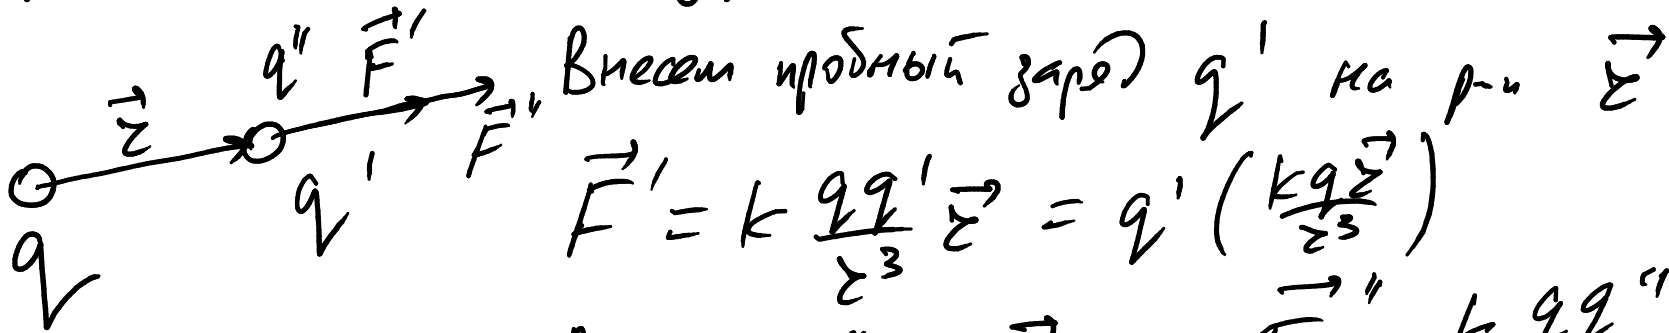 q'' F⃗' Внесем пробный заряд q' на р-и r⃗
r⃗ F⃗''
q q' F⃗' = k qq'/r³ r⃗ = q' (kqr⃗/r³)
r⃗ F⃗'' k qq''